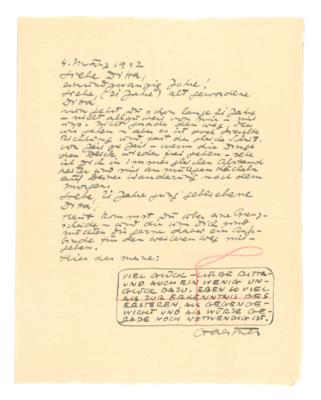 4. März 1932
Liebe Ditta,
einundzwanzig Jahre!
Liebe, (21 Jahre) alt gewordene
Ditta!
nun gehst Du schon lange 21 Jahre
- nicht allzu weit von mir - mit
uns. Nicht grade den Weg, den
wir gehen, aber es ist doch dieselbe
Richtung und fast der gleiche Schritt.
von Zeit zu Zeit - wenn die Dinge
den Blick wieder frei geben - sehe
ich Dich in immer gleichem Abstand
heiter und mit
auf Deiner Wanderung nach dem
morgen.
Liebe, 21 Jahre jung gebliebene
Ditta!
Heut kommst Du über eine Grenz-
scheide - und die um Dich sind
möchten Dir gerne dabei ein
für den weiteren Weg mit-
geben.
Hier das meine:
VIEL GLÜCK - LIEBE DITTA -
UND AUCH EIN WENIG UN-
GLÜCK DAZU. EBEN SO VIEL
ALS ZUR ERKENNTNIS DES
ERSTEREN, ALS GEGENGE-
WICHT UND ALS WÜRZE GE-
RADE NOCH NOTWENDIG IST.